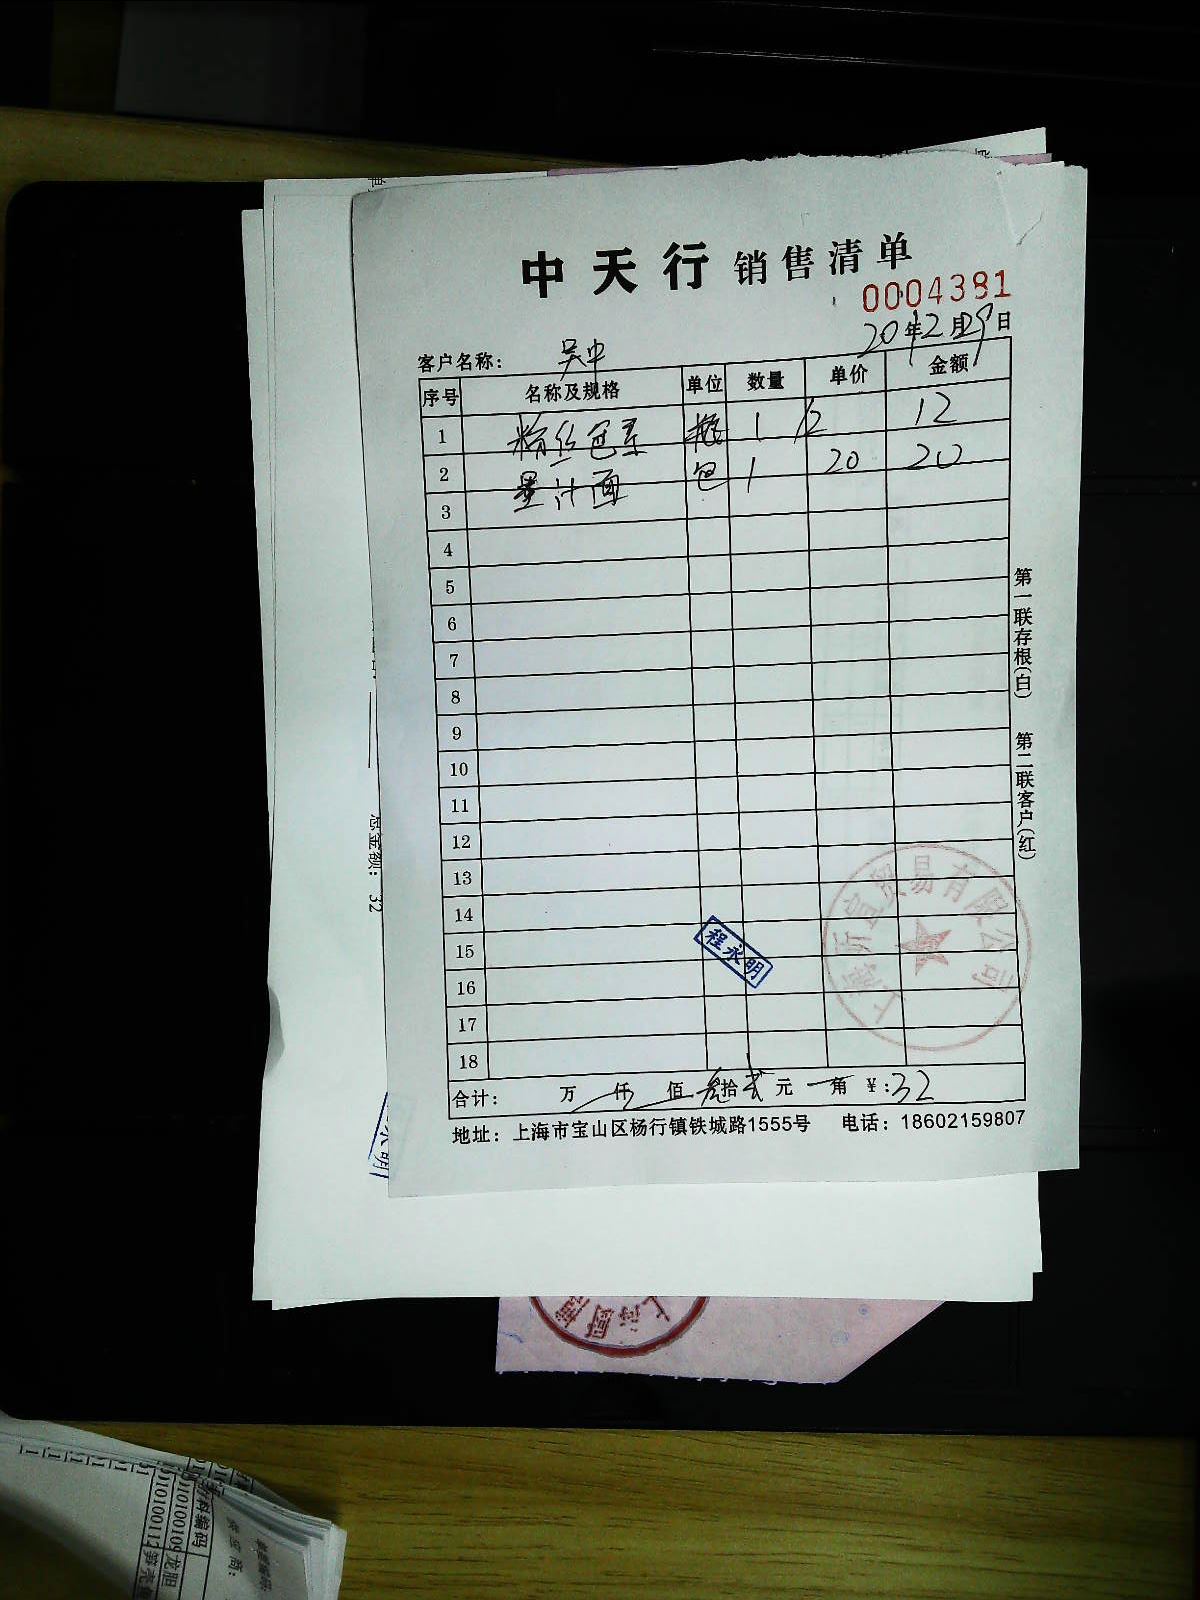 中天行 销售清单
0004381
20 年 2 月 29 日
客户名称: 吴中
序号 名称及规格 单位 数量 单价 金额
1 粉丝包系 瓶 1 12 12
2 墨汁面 包 1 20 20
3
4
5
6
7
8
9
10
11
12
13
14
15
16
17
18
合计: 万 仟 佰 叁拾贰元 角 ¥:32
地址: 上海市宝山区杨行镇铁城路1555号 电话: 18602159807
第一联存根(白) 第二联客户(红)
程永明
贸易有限公司
总金额: 32
上海
物料编码
龙胆